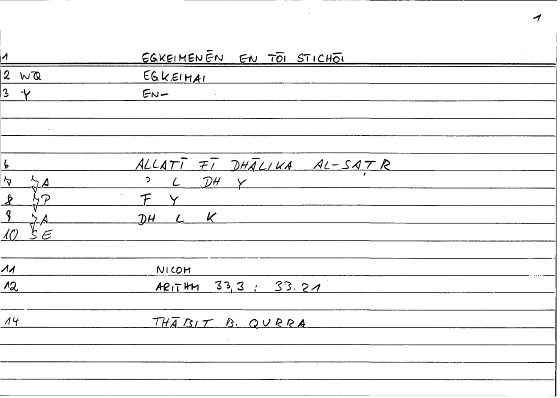 1
1 EGKEIMENĒN EN TŌI STICHŌI
2 WQ EGKEIMAI
3 Y EN-
6 ALLATĪ FĪ DHĀLIKA AL-SAṬR
7 A ʾ L DH Y
8 P F Y
9 A DH L K
10 SE
11 NICOM
12 ARITHM 33,3 : 33.21
14 THĀBIT B. QURRA